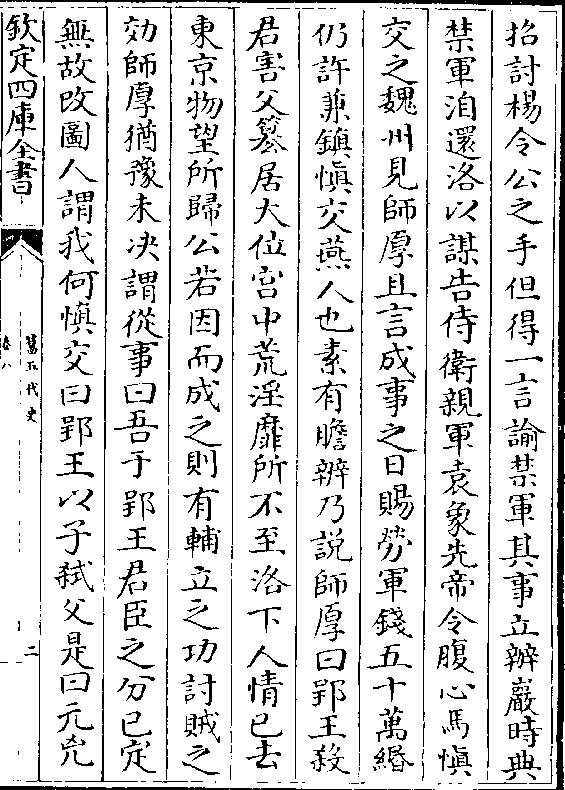 招討楊令公之手但得一言諭禁軍其事立辦巖時典
禁軍洎還洛以謀告侍衛親軍袁象先帝令腹心馬慎
交之魏州見師厚且言成事之日賜勞軍錢五十萬緡
仍許兼鎮慎交燕人也素有膽辨乃説師厚曰郢王殺
君害父簒居大位宫中荒淫靡所不至洛下人情已去
東京物望所歸公若因而成之則有輔立之功討賊之
効師厚猶豫未决謂從事曰吾于郢王君臣之分已定
無故改圖人謂我何慎交曰郢王以子弑父是曰元兇
欽定四庫全書
舊五代史
卷八
二